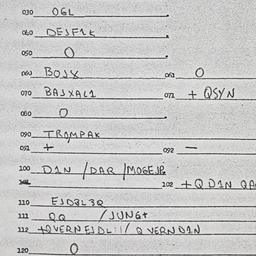 030 OGL
040 DESF1K
050 O
060 BOJX 061 O
070 BAJXAL1 071 + QSYN
080 O
090 TROMPAK
091 + 092 —
100 D1N /DAR /MOGEJP
102 + Q D1N QA
110 EJDBL3Q
111 QQ /JUNG+
112 +QVERN EJDL:1/ Q VERN D1N
120 O